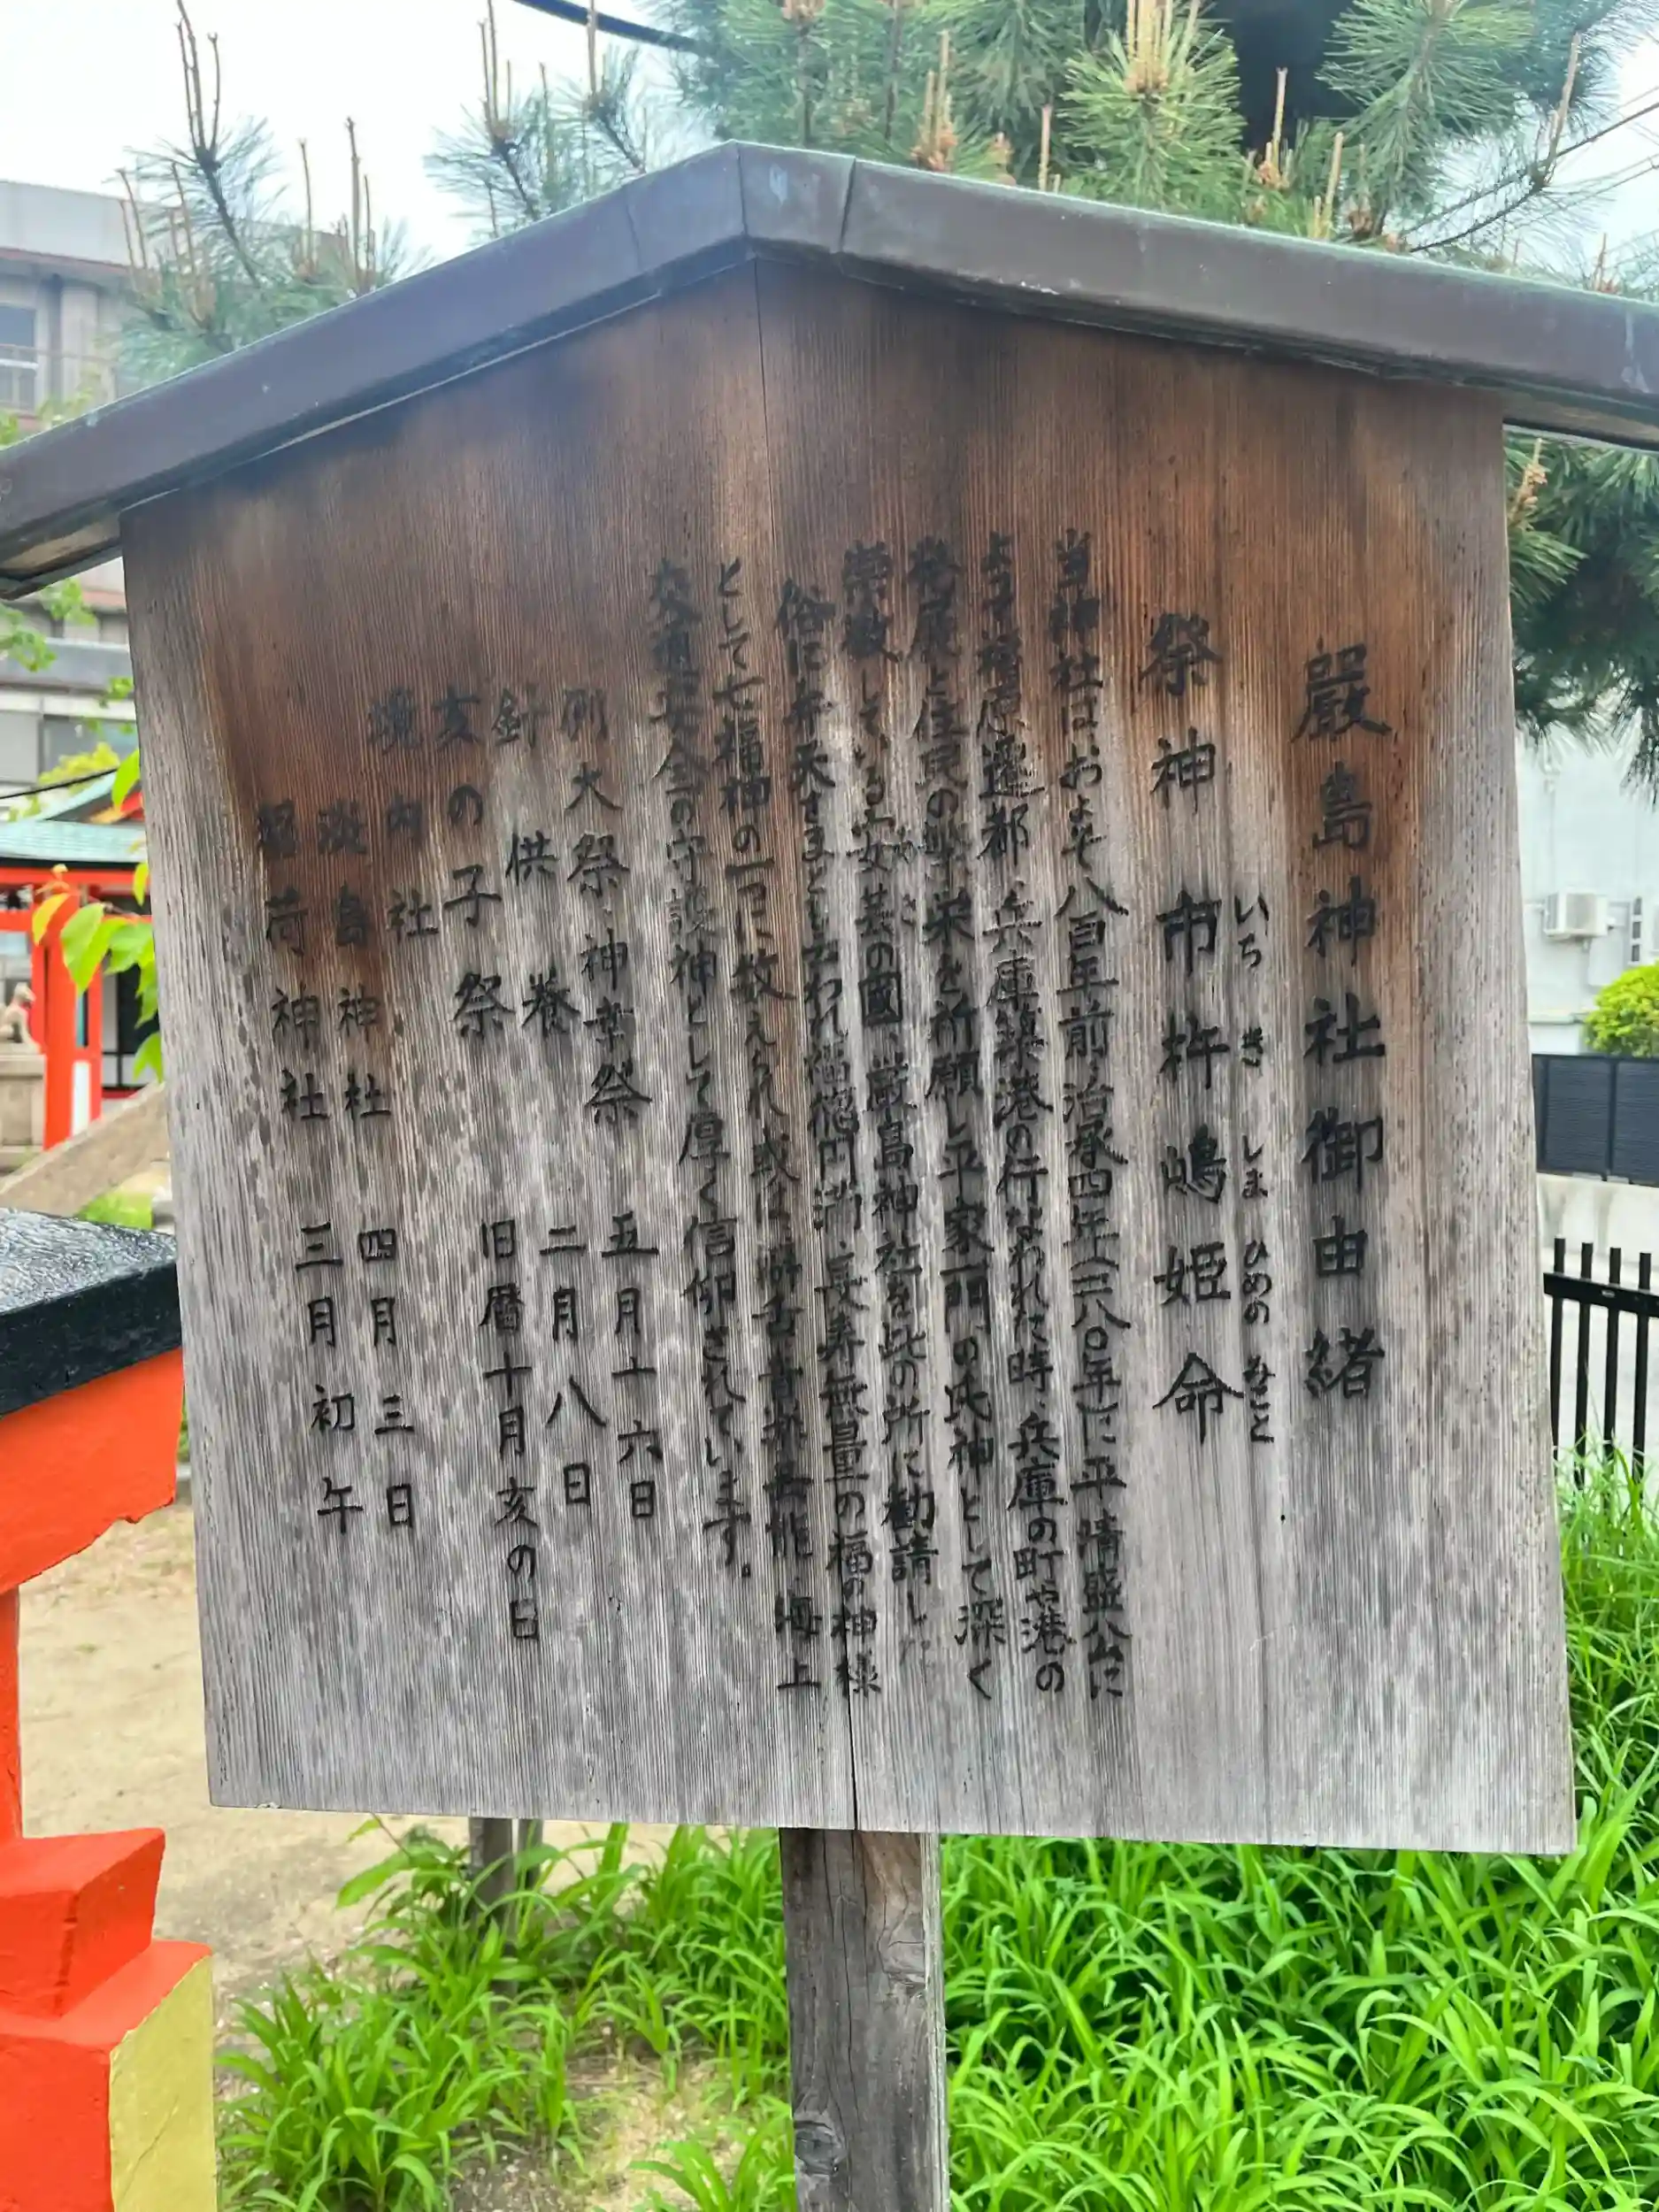 嚴島神社御由緒
祭神 市杵嶋姫命
いち き しま ひめの みこと
当神社はおよそ八百年前治承四年(一一八〇年)に平清盛公に
よって福原遷都、兵庫築港の行なわれた時、兵庫の町や港の
発展と住民の繁栄を祈願し平家一門の氏神として深く
崇敬している安芸の國、厳島神社を此の所に勧請した
俗に弁天さまともいわれ福徳円満、長寿無量の福の神様
として七福神の一つに数えられ或は 海上
交通安全の守護神として厚く信仰されています。
例大祭・神幸祭 五月十六日
針供養 二月八日
亥の子祭 旧暦十月亥の日
境内社
淡島神社 四月三日
稲荷神社 三月初午